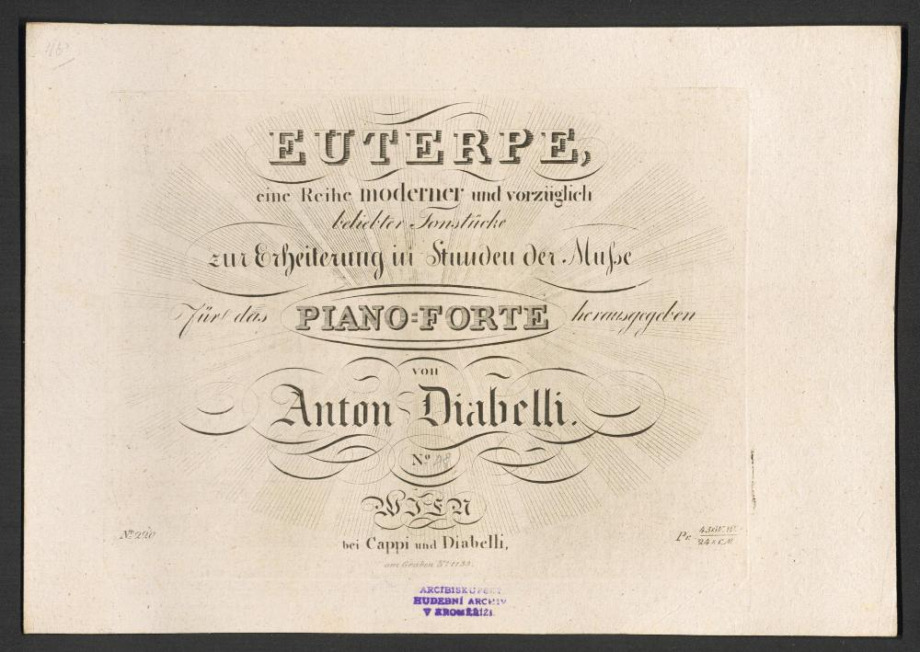 EUTERPE,
eine Reihe moderner und vorzüglich
beliebter Tonstücke
zur Erheiterung in Stunden der Muße
Für das PIANO=FORTE herausgegeben
von
Anton Diabelli.
No.
WIEN
No. 220
Pr.
bei Cappi und Diabelli,
am Graben No. 1133.
ARCIBISKUPSKÝ
HUDEBNÍ ARCHIV
V KROMĚŘÍŽI.